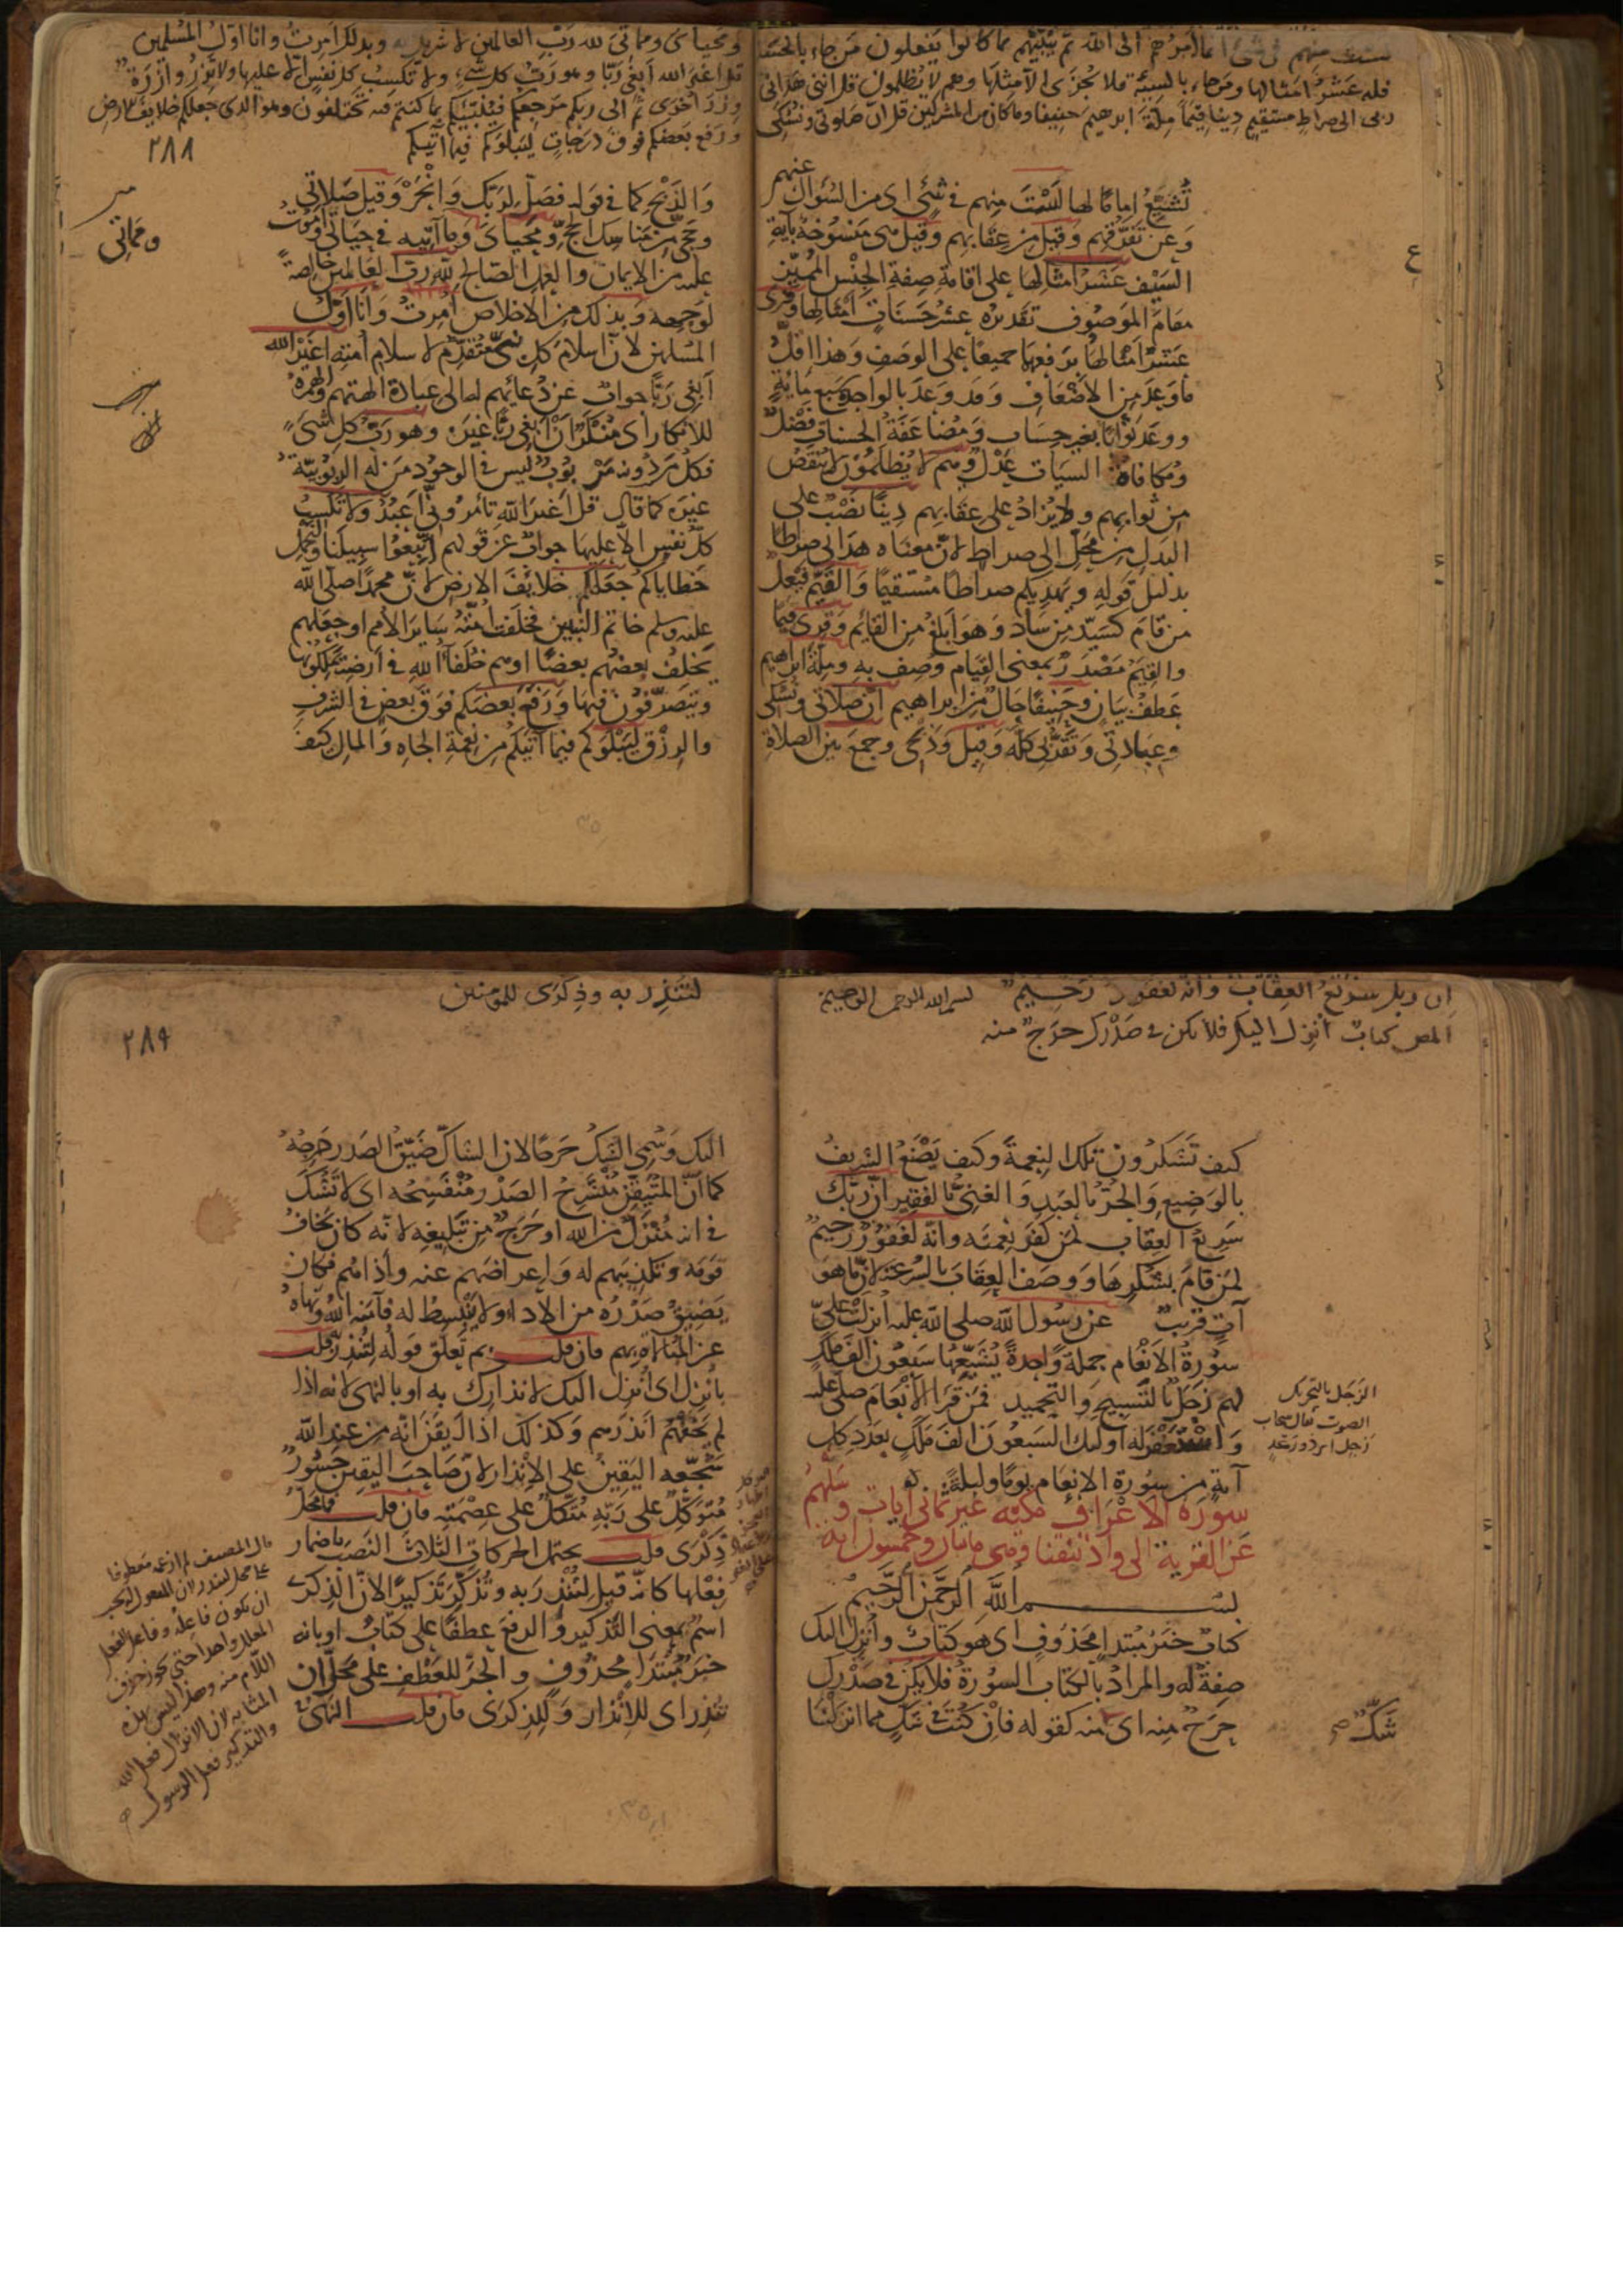 لست منهم فى شئ انما امرهم الى الله ثم ينبئهم بما كانوا يفعلون من جاء بالحسنة
فله عشر امثالها ومن جاء بالسيئة فلا يجزى الا مثلها وهم لا يظلمون قل اننى هدانى
ربى الى صراط مستقيم دينا قيما ملة ابرهيم حنيفا وما كان من المشركين قل ان صلوتى ونسكى
تُشَيِّعُ امامًا لها لَسْتَ منهم فى شَئٍ اى من السُؤال عنهم
وعن تَفَرُّقِهِم وقيل من عقابهم وقيل هى مَنْسُوخَةٌ بآية
السَيْف عَشْرُ امثالها على اقامة صِفةِ الجِنْسِ المُمَيَّزِ
مقامَ الموصُوف تقديره عشرُ حَسَناتٍ أمثالِها وقرئ
عَشْرٌ أمثالُها برفعهما جميعًا على الوصف وهذا اقلُّ
ما وَعَدَ من الأضْعافِ وقد وَعَدَ بالواحد سَبع مائةٍ
ووعَد ثوابًا بغير حِسَاب ومُضاعَفَةُ الحسناتِ فَضْلٌ
ومُكافاة السيآت عَدْلٌ وهم لا يُظْلَمُون لا يُنْقَصُ
من ثوابهم ولا يُزادُ على عقابهم دينًا نَصْبٌ على
البدل من مَحَلِّ الى صراط لانّ معناه هدانى صراطا
بدليل قوله ويهديكم صراطًا مُسْتقيمًا والقَيِّم فَيْعِل
من قامَ كسَيّد من سادَ وهو أبلغ من القائم وقرئ قِيَمًا
والقِيَمُ مَصْدرٌ بمعنى القِيام وُصف به وملّةَ ابراهيم
عَطفُ بيانٍ وحَنيفًا حالٌ من ابراهيم ان صلاتى ونسكى
وعِبادتى وتَقَرُّبى كلَّه وقيل وذَبْحى وجمعَ بين الصلاة
ومحياى ومماتى لله رب العالمين لا شريك له وبذلك امرت وانا اول المسلمين
قل اغير الله ابغى ربا وهو رب كل شئ ولا تكسب كل نفس الا عليها ولا تزر وازرة
وزر اخرى ثم الى ربكم مرجعكم فينبئكم بما كنتم فيه تختلفون وهو الذى جعلكم خلايف الارض
ورفع بعضكم فوق درجات ليبلوكم فيما آتيكم
٢٨٨
والذَبْح كما فى قوله فصَلِّ لربّك وانْحَرْ وقيل صَلاتى
وحَجّى من مناسِك الحجّ ومَحْياىَ وما آتيه فى حَياتى وأموتُ
عليه من الايمان والعمل الصالح لله رب العالمين خالصةً
لوَجهِه وبذلك من الاخلاص اُمِرتُ وانا اوّل
المسلمين لانّ اسلامَ كلِ نبىٍّ مُتقدِّمٌ لاسلام امته اغيرَ الله
أبْغى رَبًّا جوابٌ عن دُعائهم له الى عبادة آلهتهم والهمزة
للانكار اى مُنْكَرٌ ان أبغى ربًّا غيرَه وهو ربّ كل شئٍ
فكلُّ مَن دُونه مَرْبُوبٌ ليس فى الوجُود مَن له الربُوبيّةُ
غيرَه كما قال قل أفغيرَ اللهِ تأمرُونّى أعبدُ ولا تكسِبُ
كلُّ نفس الا عليها جوابٌ عن قولهم اتّبعُوا سبيلَنا ولنحمل
خطاياكم جعلكم خلايِفَ الارض لانّ محمدًا صلى الله
عليه وسلم خاتم النبيين فخلَفت أمّتُه سايرَ الأمم او جعلهم
يَخلفُ بعضُهم بعضًا اوهم خُلفاءُ الله فى أرضه يملكونها
ويتصرّفُون فيها ورفع بعضَكم فوقَ بعضٍ فى الشرف
والرزْق ليَبْلوَكم فيما آتيكم من نِعْمة الجاهِ والمال كيف
ومَماتى
ان ربك سريع العقاب وانه لغفور رحيم بسم الله الرحمن الرحيم
المص كتاب انزل اليك فلا يكن فى صدرك حرج منه
كيف تَشكرُون تلكَ النِعمةَ وكيف يَصْنَعُ الشريفُ
بالوَضيع والحُرُّ بالعَبدِ والغنىُّ بالفقير انّ ربّك
سَريعُ العِقاب لمن كفَر نِعمتَه وانه لغَفُورٌ رحيمٌ
لمَن قامَ بشُكرها ووصَف العِقابَ بالسُرعة لانّ ما هو
آتٍ قريبٌ عن رسُول الله صلى الله عليه أنزلَت علىَّ
سُورةُ الأنعام جملةً واحدةً يُشيِّعُها سَبعُون الفَ ملك
لهم زجَلٌ بالتسبيحِ والتحميد فمَن قرأ الأنعامَ صلّى عليه
واستغفر له اوليك السَبعُون الفَ مَلَكٍ بعدَد كل
آيةٍ من سُورة الانعام يومًا وليلةً
سُورة الأعراف مكيّه غير ثمانى آيات وسَلْهُم
عَنِ القَرْية الى واذ نتقنا وهى مائتان وخمسون آية
بسم الله الرّحمن الرّحيم
كتابٌ خبَرُ مُبتدإٍ مَحذوفٍ اى هو كتابٌ وأُنزِل اليك
صفةٌ له والمرادُ بالكتاب السُورةُ فلا يكن فى صدرك
حرجٌ منه اى منه كقوله فإن كنْتَ فى شكٍّ مما انزلنا
الزجَل بالتحريك
الصوت يقال سحاب
زجل اى ذو رعد
شكّ صح
لتنذر به وذكرى للمؤمنين
٢٨٩
اليك وسُمى الشَكُّ حَرجًا لان الشاكَّ ضَيّقُ الصَدر حَرِجُهُ
كما انّ المتيقّن مُنْشَرحُ الصَدْر مُنْفَسِحُه اى لا تَشُكَّ
فى انه مُنْزَلٌ من الله او حَرَجٌ من تبليغه لانّه كان يَخافُ
قَومَه وتكذيبَهم له وإعراضَهم عنه وأذاهُم فكان
يَضيقُ صدْرُه من الاداء ولا يَنبسِطُ له فآمنَه اللهُ ونهاهُ
عن المُبالاة بهم فان قلت بم تَعلّق قولُه لتُنذِرَ قلت
بأنزِل اى أُنزِل اليك لانذارك به او بالنهى لانه اذا
لم يَخفْهم أنذرَهم وكذلك اذا أيقنَ انّه من عند الله
شجَّعه اليَقينُ على الإنذار لانّ صَاحبَ اليقينِ جَسُورٌ
مُتوكّلٌ على رَبّه مُتّكلٌ على عِصْمَتِه فان قلت فما محلّ
ذِكْرَى قلت يحتمل الحركات الثلاث النَصبَ باضمار
فِعْلها كانّه قيل لتُنذِرَ به وتُذَكِّرَ تذكيرًا لانّ الذِكرَى
اسمٌ بمعنى التَذكير والرفعَ عطفًا على كتابٌ او بانه
خبَرُ مُبتدإٍ محذُوفٍ والجَرَّ للعَطفِ على محلّ ان
تنذِر اى للإنذار وللذِكرَى فان قلت النهىُ
المعلل واحدا حتى يجوز حذف
اللام منه وهذا ليس بهذه
المثابة لان الانزال فعل الله
والتذكير فعل الرسول